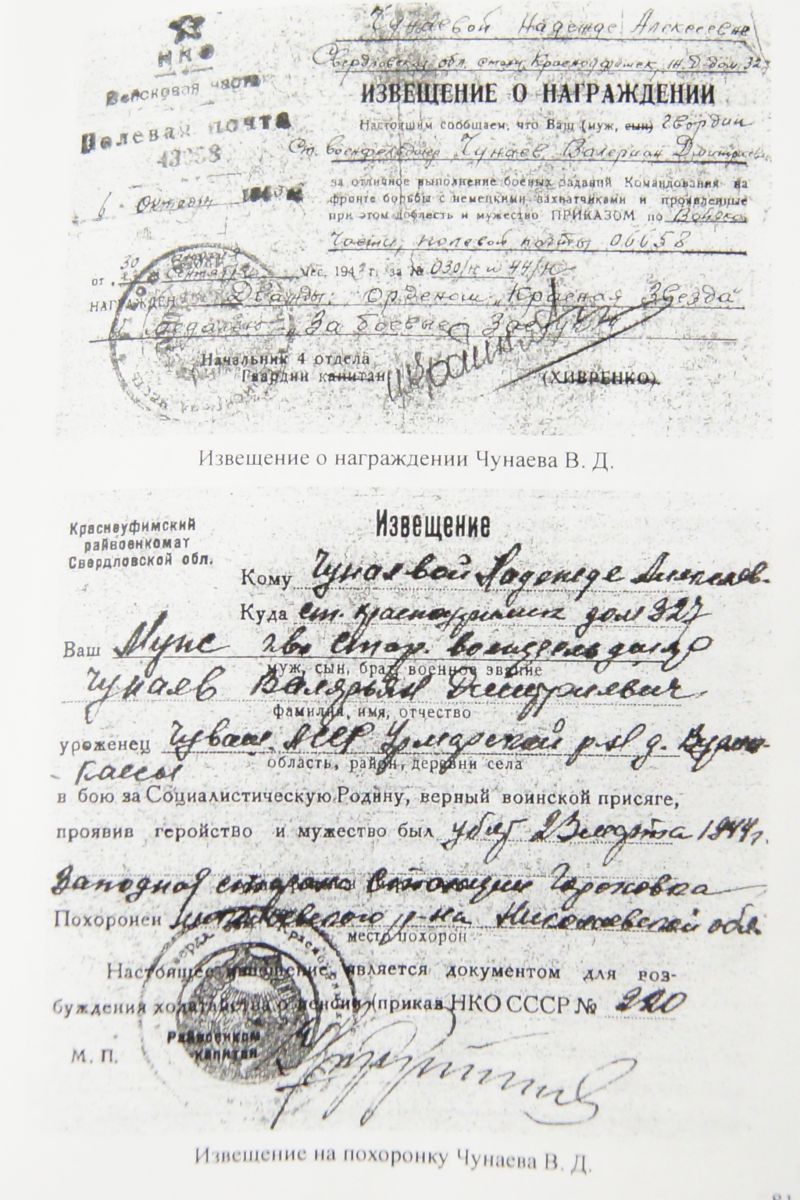 НКО
Войсковая часть
Полевая почта
43058
6 Октября 1943
Чунаевой Надежде Алексеевне
Свердловской обл. станц. Красноуфимск, ж.д. дом. 327
ИЗВЕЩЕНИЕ О НАГРАЖДЕНИИ
Настоящим сообщаем, что Ваш (муж, сын) Гвардии
Ст. военфельдшер Чунаев Валериан Дмитриевич
за отличное выполнение боевых заданий Командования на
фронте борьбы с немецкими захватчиками и проявленные
при этом доблесть и мужество ПРИКАЗОМ по Войско
Части, полевой почты 06658
от 30 Сентября мес. 194 г. за № 030/н и 44/н
НАГРАЖДЕН Дважды: Орденом "Красная Звезда"
и медалью "За боевые Заслуги"
Начальник 4 отдела
Гвардии капитан (ХИВРЕНКО)
Извещение о награждении Чунаева В. Д.
Красноуфимский
райвоенкомат
Свердловской обл.
Извещение
Кому Чунаевой Надежде Алексеев-
Куда ст. Красноуфимск дом 327
Ваш Муж гв. стар. военфельдшер
муж, сын, брат, военное звание
Чунаев Валярьян Дмитриевич
фамилия, имя, отчество
уроженец Чуваш. АССР Урмарской р-н д.
Кассы
область, район, деревни села
в бою за Социалистическую Родину, верный воинской присяге,
проявив геройство и мужество был убит 23 марта 1944 г.
Западнее станции Гороховка
Похоронен р-на Николаевской обл.
место похорон
Настоящее извещение является документом для воз-
буждения ходатайства о пенсии (приказ НКО СССР № 220
Райвоенком
капитан
М. П.
Извещение на похоронку Чунаева В. Д.